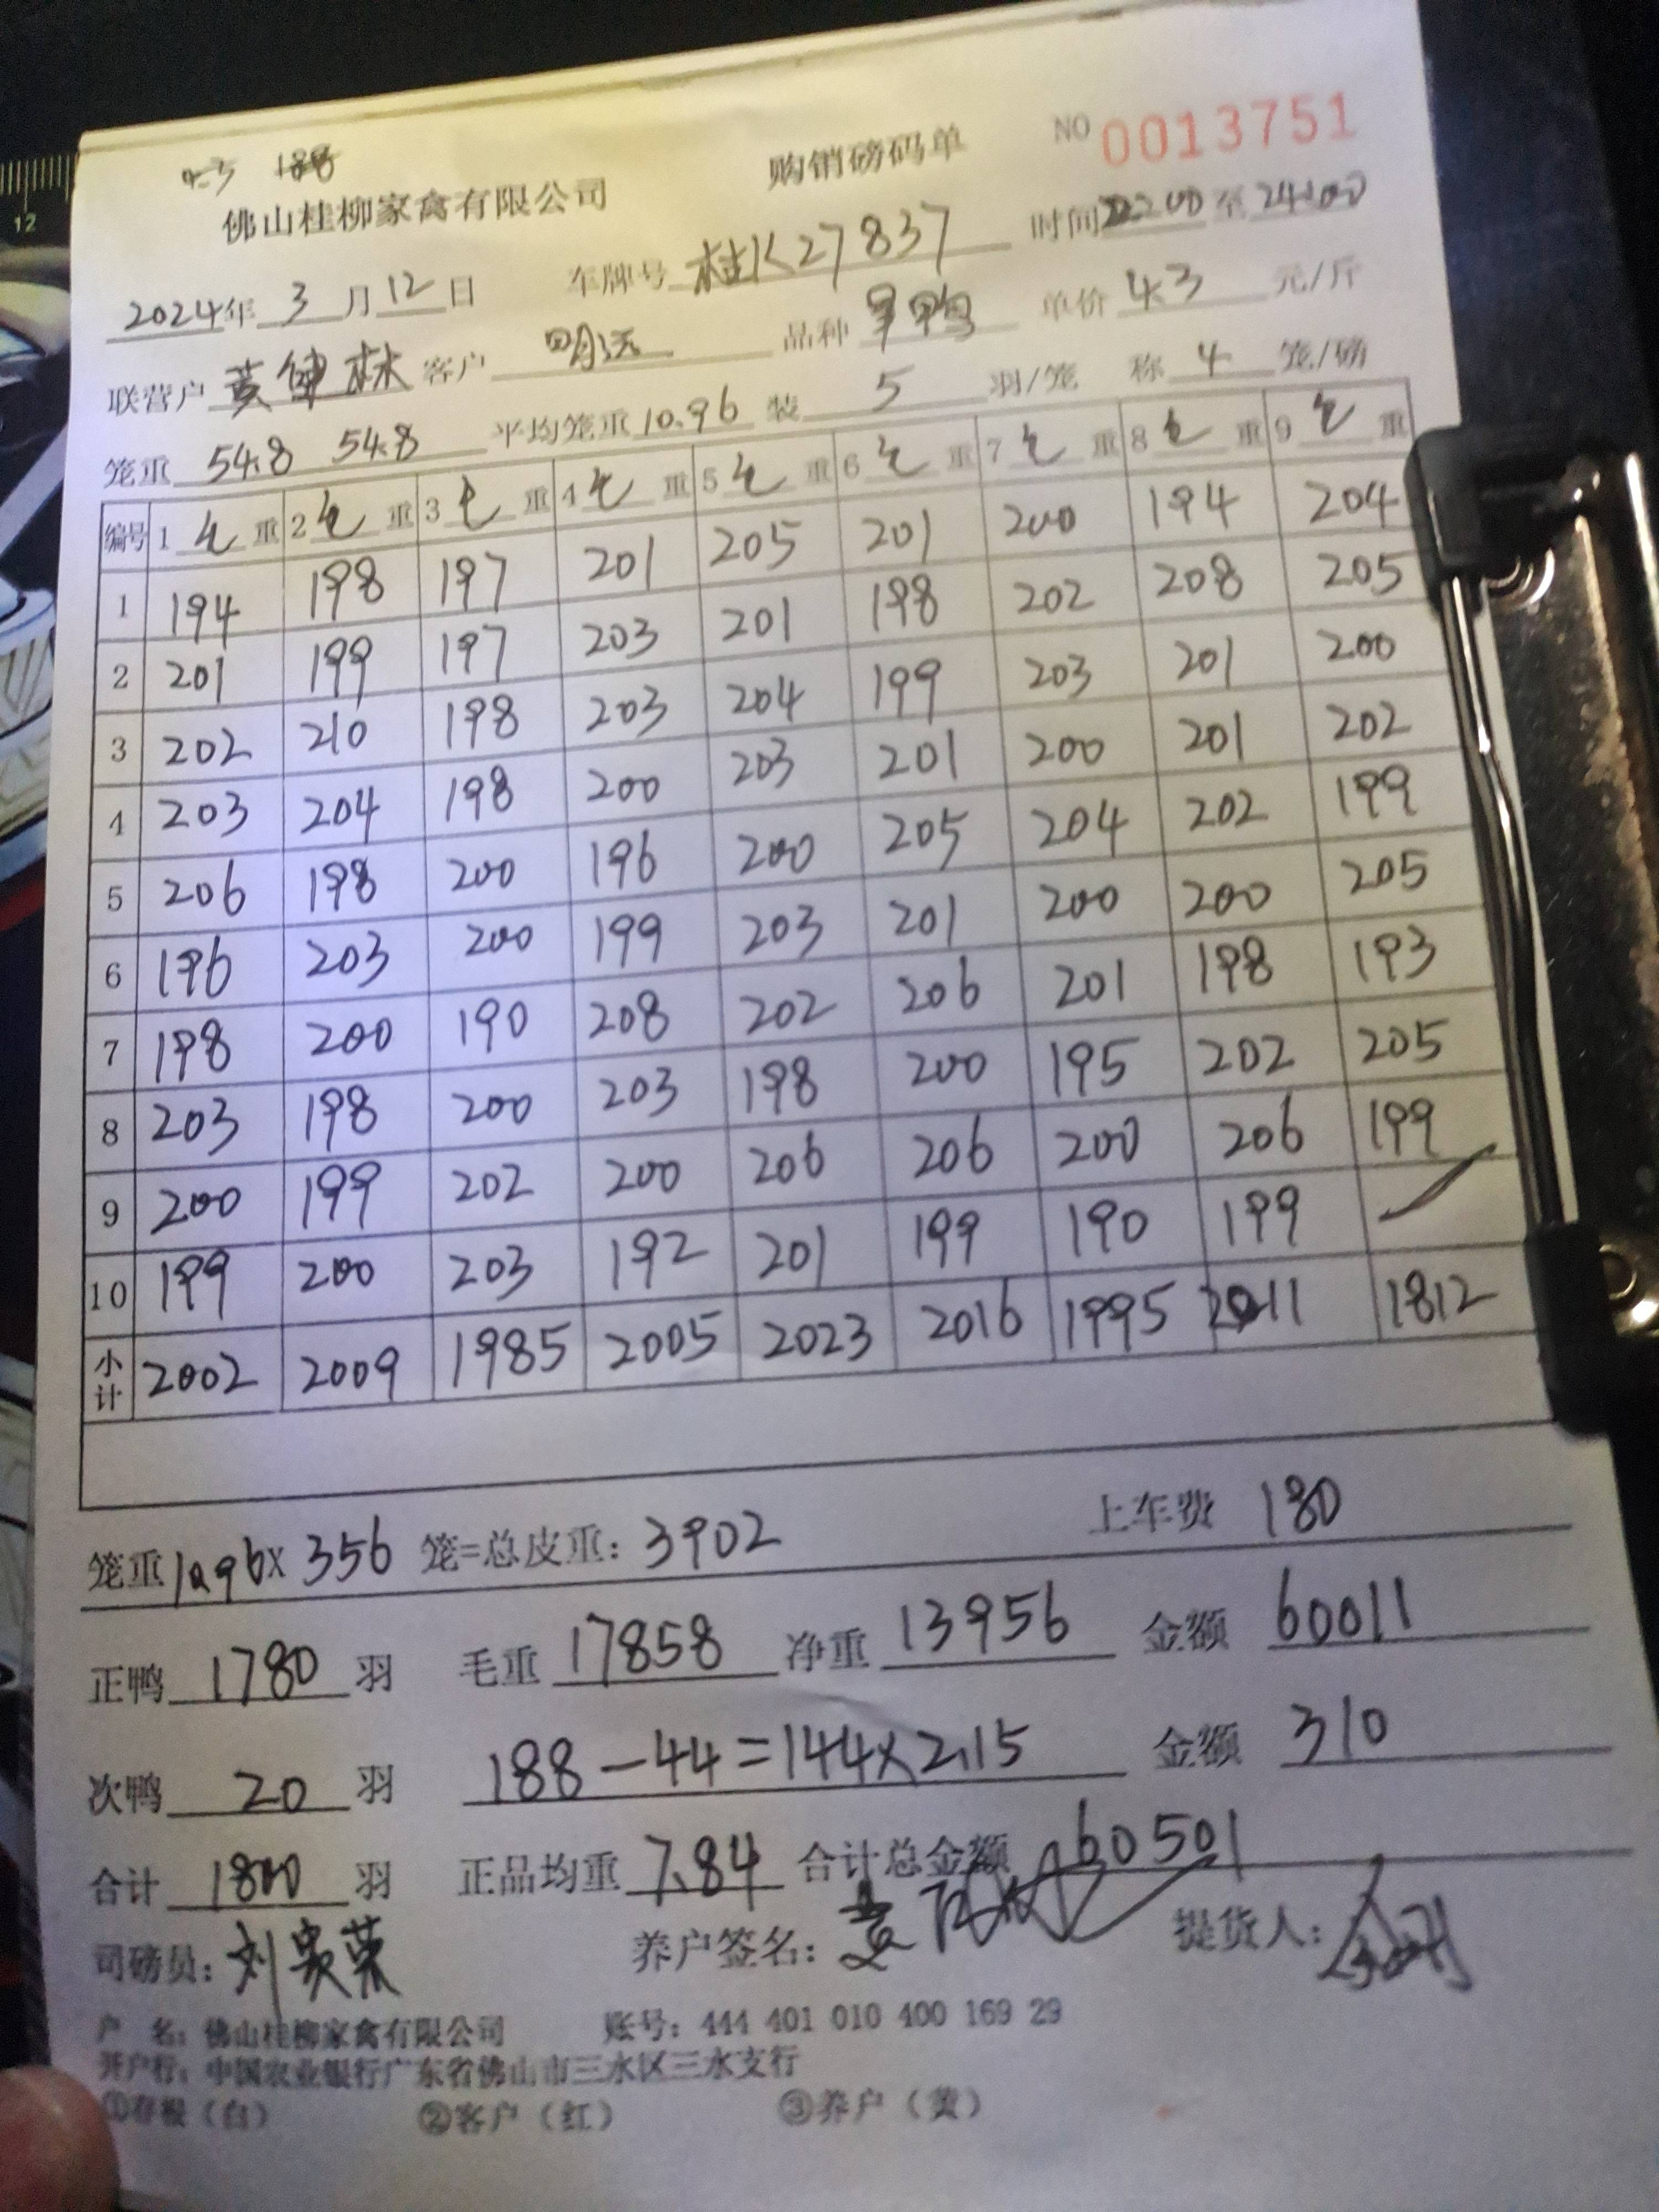 4.3 188
佛山桂柳家禽有限公司 购销磅码单 NO 0013751
2024年 3 月 12 日 车牌号 桂K27837 时间 22:00 至 24:00
联营户 黄健林 客户 明远 品种 旱鸭 单价 4.3 元/斤
笼重 54.8 54.8 平均笼重 10.96 装 5 羽/笼 称 4 笼/磅
编号 1 毛 重 2 毛 重 3 毛 重 4 毛 重 5 毛 重 6 毛 重 7 毛 重 8 毛 重 9 毛 重
1 194 198 197 201 205 201 200 194 204
2 201 199 197 203 201 198 202 208 205
3 202 210 198 203 204 199 203 201 200
4 203 204 198 200 203 201 200 201 202
5 206 198 200 196 200 205 204 202 199
6 196 203 200 199 203 201 200 200 205
7 198 200 190 208 202 206 201 198 193
8 203 198 200 203 198 200 195 202 205
9 200 199 202 200 206 206 200 206 199
10 199 200 203 192 201 199 190 199
小计 2002 2009 1985 2005 2023 2016 1995 2011 1812
笼重 10.96 x 356 笼=总皮重: 3902 上车费 180
正鸭 1780 羽 毛重 17858 净重 13956 金额 60011
次鸭 20 羽 188-44=144x2.15 金额 310
合计 1800 羽 正品均重 7.84 合计总金额 60501
司磅员: 刘 荣 养户签名: 黄 提货人:
户 名: 佛山桂柳家禽有限公司 账号: 444 401 010 400 169 29
开户行: 中国农业银行广东省佛山市三水区三水支行
①存根(白) ②客户(红) ③养户(黄)